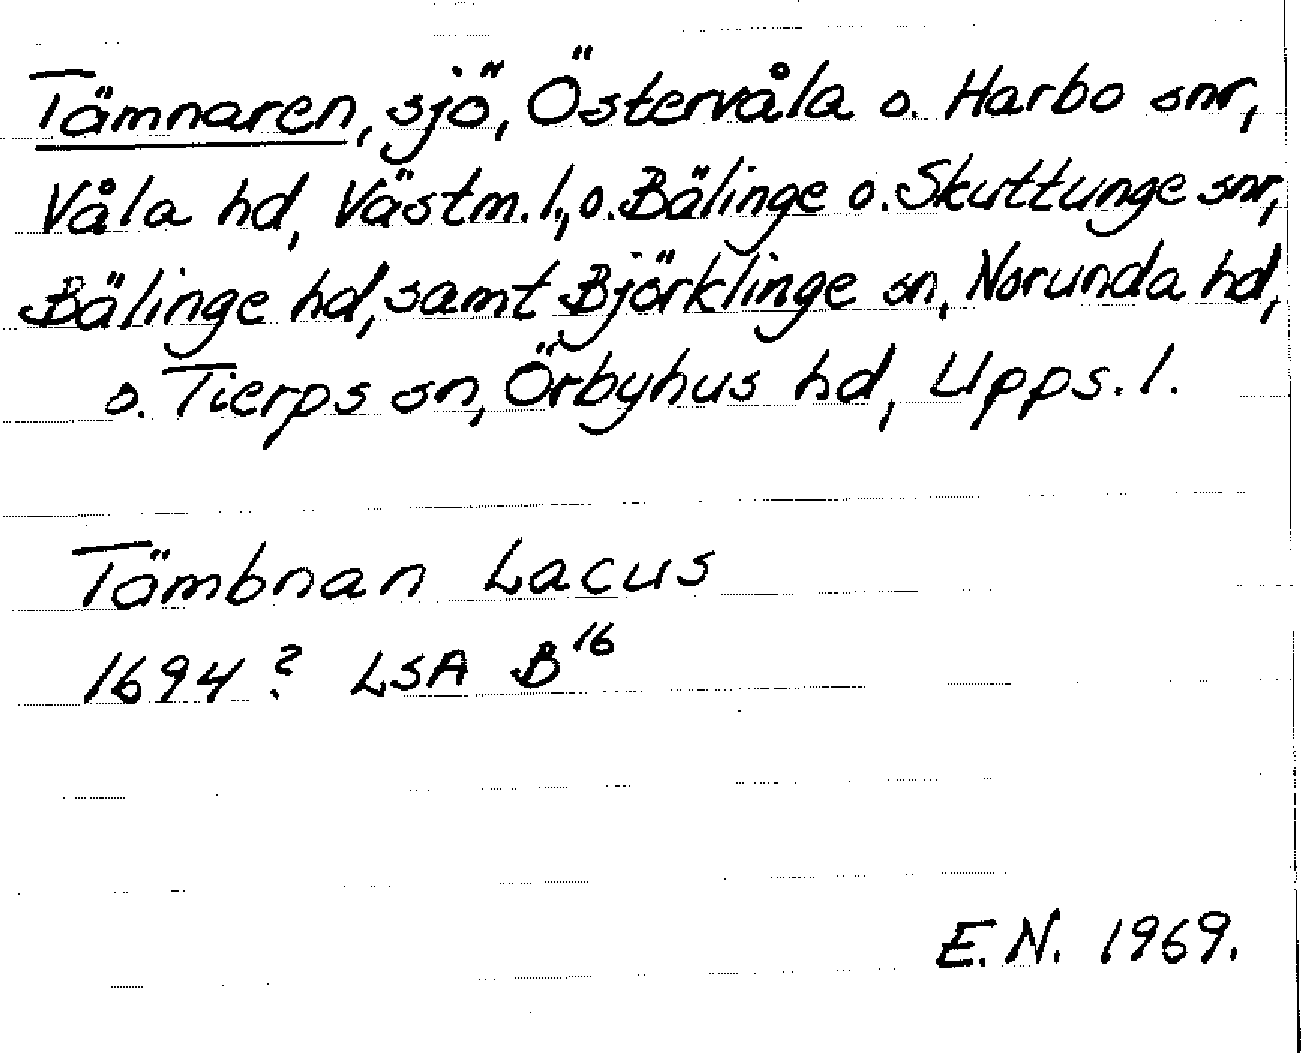 Tämnaren, sjö, Östervåla o. Harbo snr,
Våla hd, Västm. l., o. Bälinge o. Skuttunge snr,
Bälinge hd, samt Björklinge sn, Norunda hd,
o. Tierps sn, Örbyhus hd, Upps. l.
Tämbnan Lacus
1694? LSA B16
E.N. 1969.